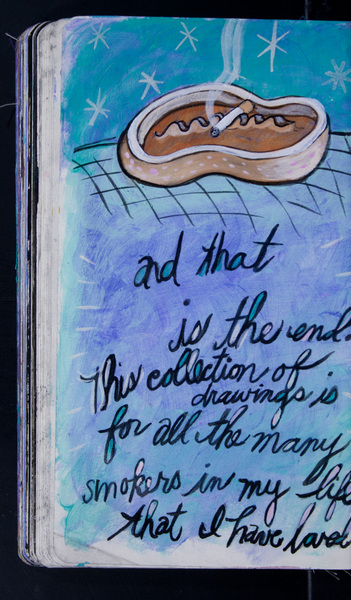 and that
is the end.
This collection of
drawings is
for all the many
smokers in my life
that I have loved